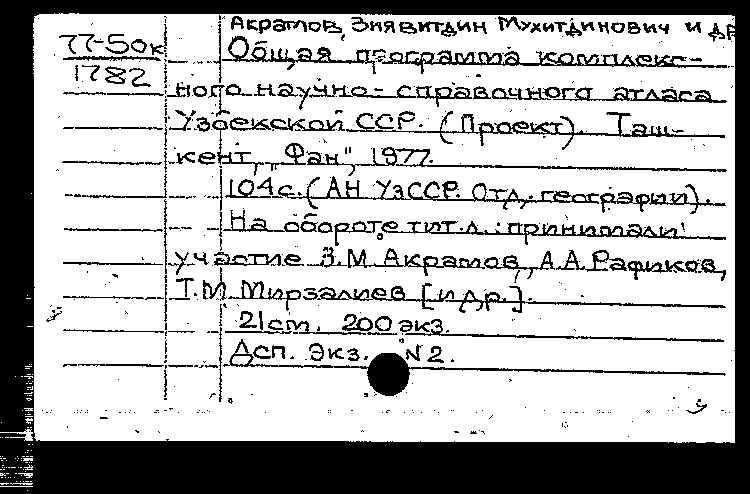 Акрамов, Зиявитдин Мухитдинович и др
77-50к
1782
Общая программа комплекс-
ного научно-справочного атласа
Узбекской ССР. (Проект). Таш-
кент, „Фан", 1977.
104с. (АН УзССР. Отд. географии).
На обороте тит.л.: принимали
участие З.М. Акрамов, А.А. Рафиков,
Т.М. Мирзалиев [и др.].
21 см. 200 экз.
Дсп. Экз. N2.